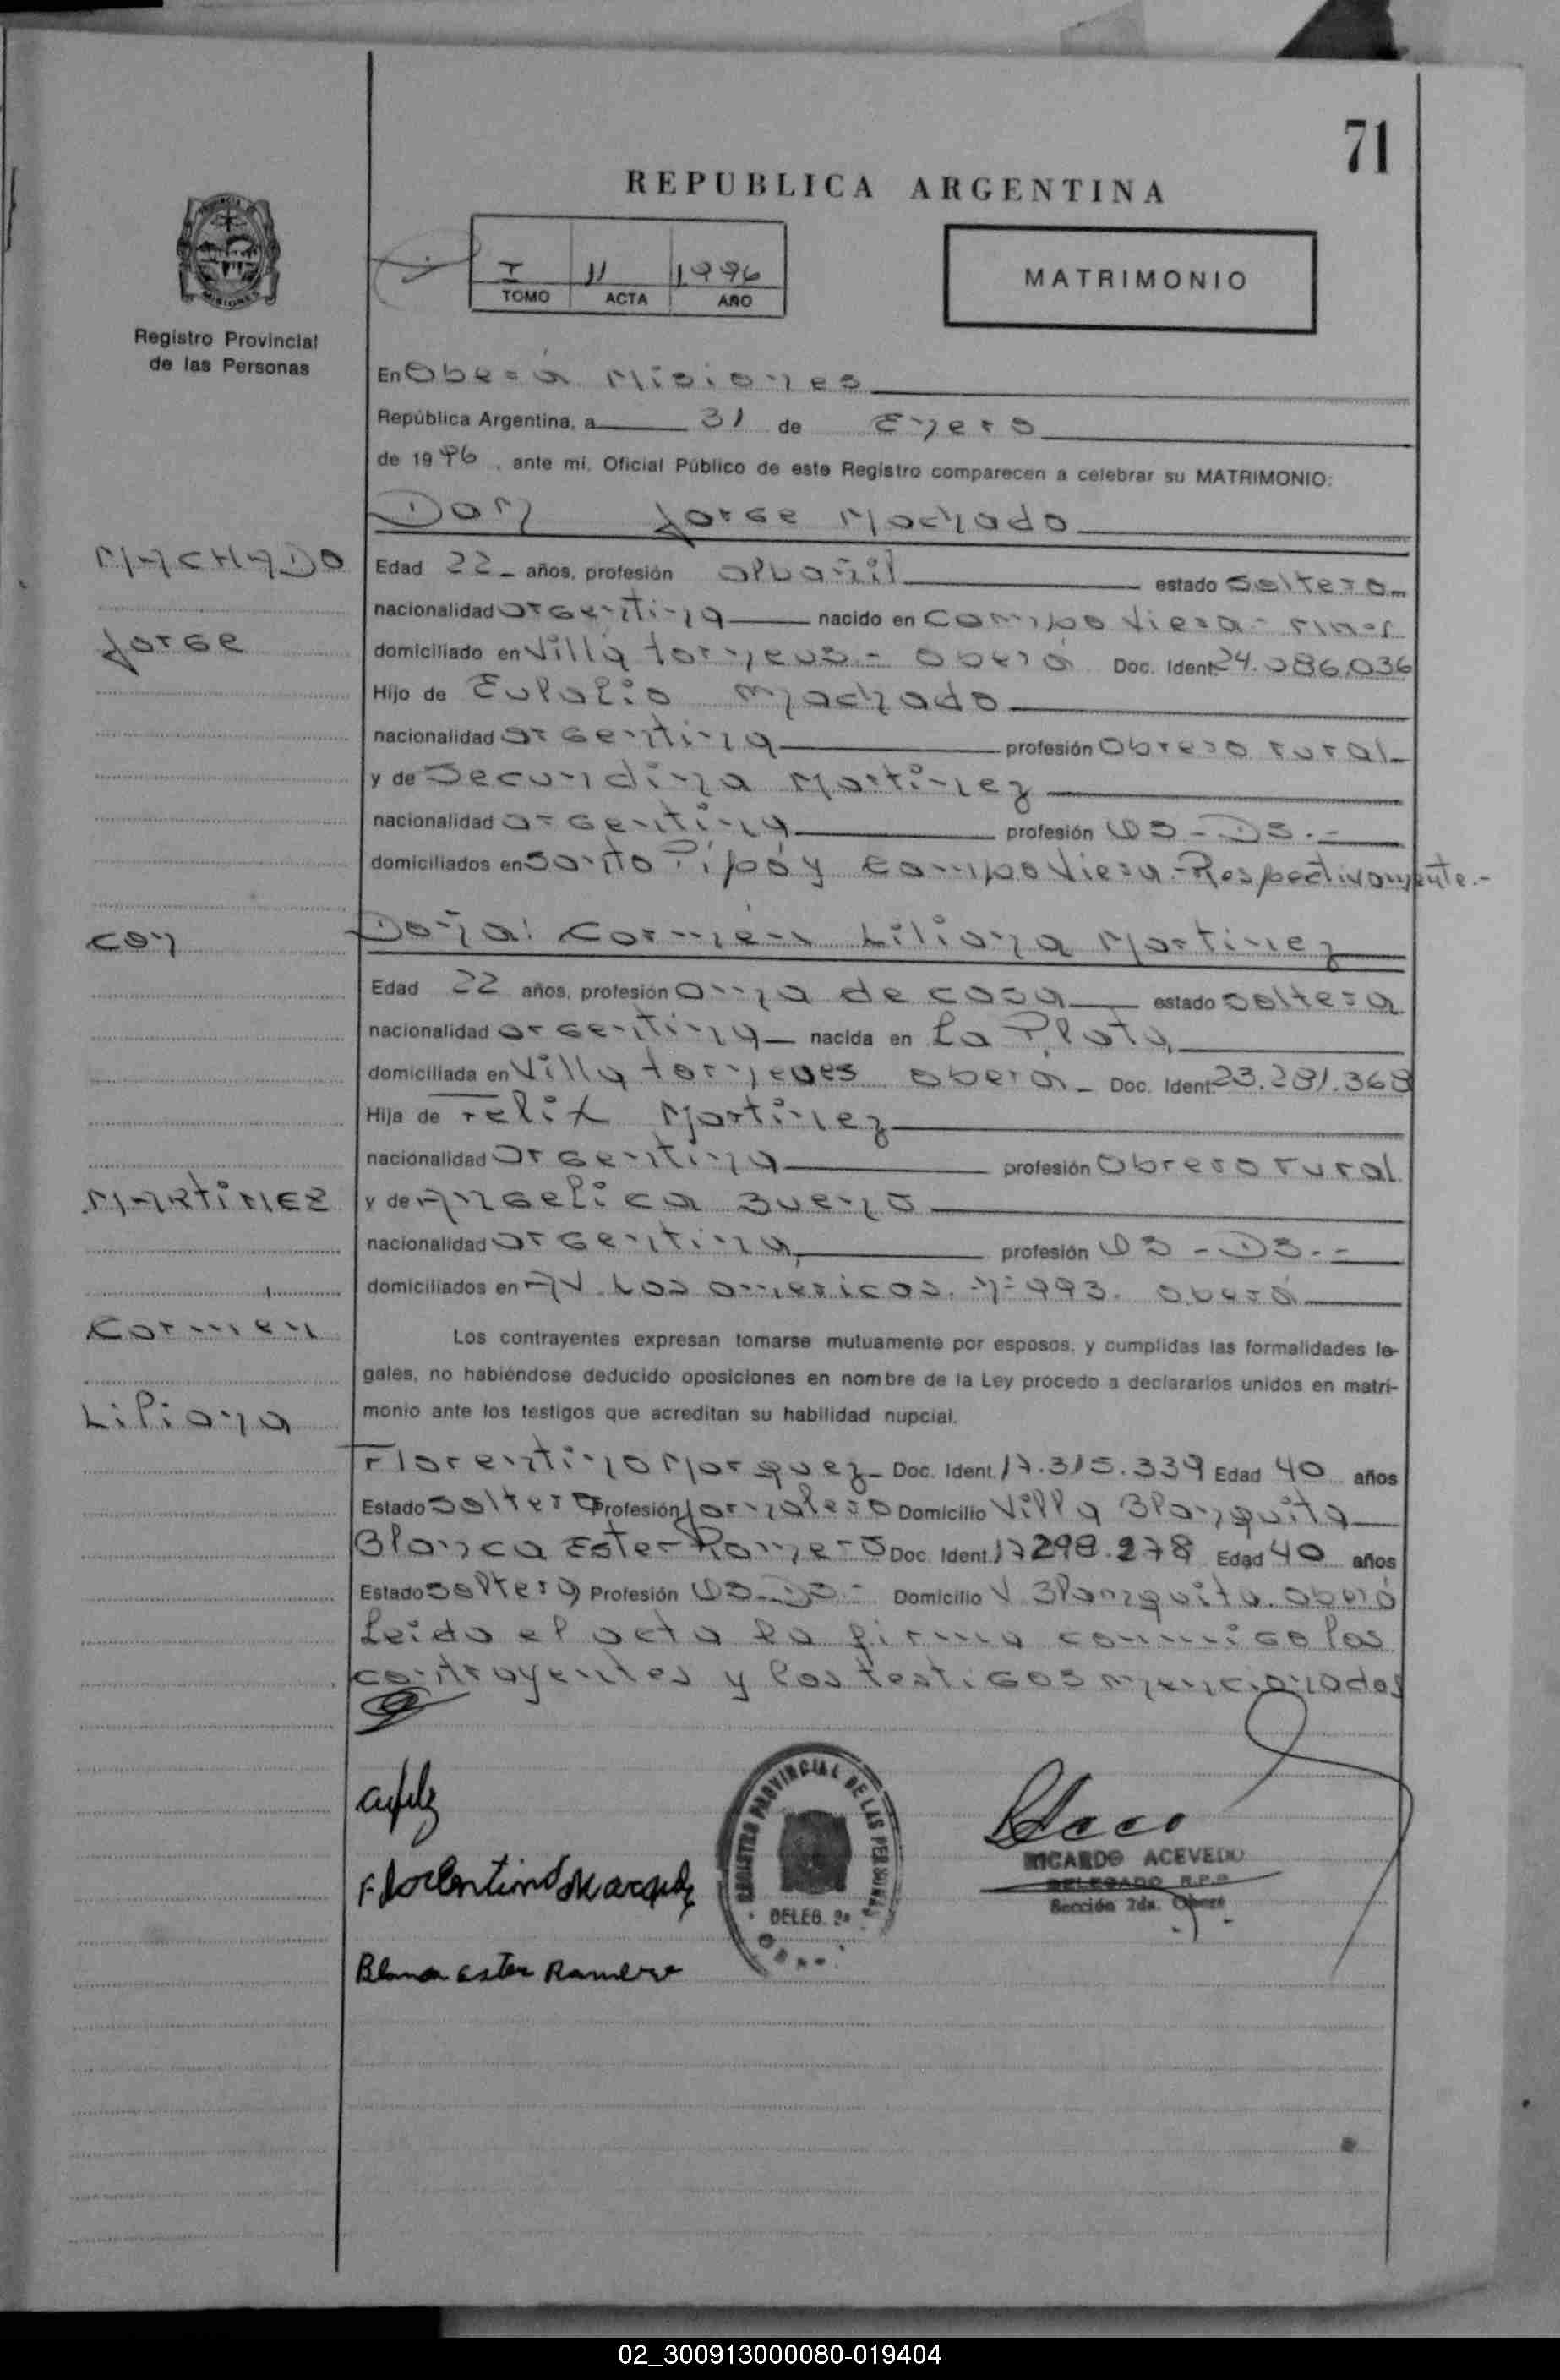 71
REPUBLICA ARGENTINA
I 11 1996
TOMO ACTA AÑO
MATRIMONIO
Registro Provincial
de las Personas
En Oberá Misiones
República Argentina, a 31 de Enero
de 1996, ante mí, Oficial Público de este Registro comparecen a celebrar su MATRIMONIO:
Don Jorge Machado
MACHADO
Edad 22 años, profesión albañil estado soltero
nacionalidad argentina nacido en Campo Viera -
Jorge
domiciliado en Villa torneus - oberá Doc. Ident. 24.086.036
Hijo de Eulalio Machado
nacionalidad argentina profesión Obrero rural
y de Secundina Martinez
nacionalidad argentina profesión QS - DS.-
domiciliados en Santo Pipó y Campo Viera.-Respectivamente.-
con
Doña: Carmen Liliana Martinez
Edad 22 años, profesión ama de casa estado soltera
nacionalidad argentina nacida en La Plata
domiciliada en Villa torneues oberá Doc. Ident. 23.281.368
Hija de Felix Martinez
nacionalidad Argentina profesión Obrero rural
MARTINEZ
y de Angelica Bueno
nacionalidad argentina profesión QS - DS.-
domiciliados en AV. Las americas. Nº 993. oberá
Carmen
Los contrayentes expresan tomarse mutuamente por esposos, y cumplidas las formalidades le-
gales, no habiéndose deducido oposiciones en nombre de la Ley procedo a declararlos unidos en matri-
Liliana
monio ante los testigos que acreditan su habilidad nupcial.
Florentino Marquez Doc. Ident. 17.315.339 Edad 40 años
Estado soltero Profesión jornalero Domicilio Villa Blanquita
Blanca Ester Romero Doc. Ident. 17298.278 Edad 40 años
Estado soltera Profesión QS-DS.- Domicilio V. Blanquita. oberá
Leido el acta la firma conmigo los
contrayentes y los testigos mencionados
Florentino Marquez
REGISTRO PROVINCIAL DE LAS PERSONAS
DELEG. 2a
RICARDO ACEVEDO
DELEGADO R.P.P.
Sección 2da. Oberá
Blanca Ester Ramero
02_300913000080-019404